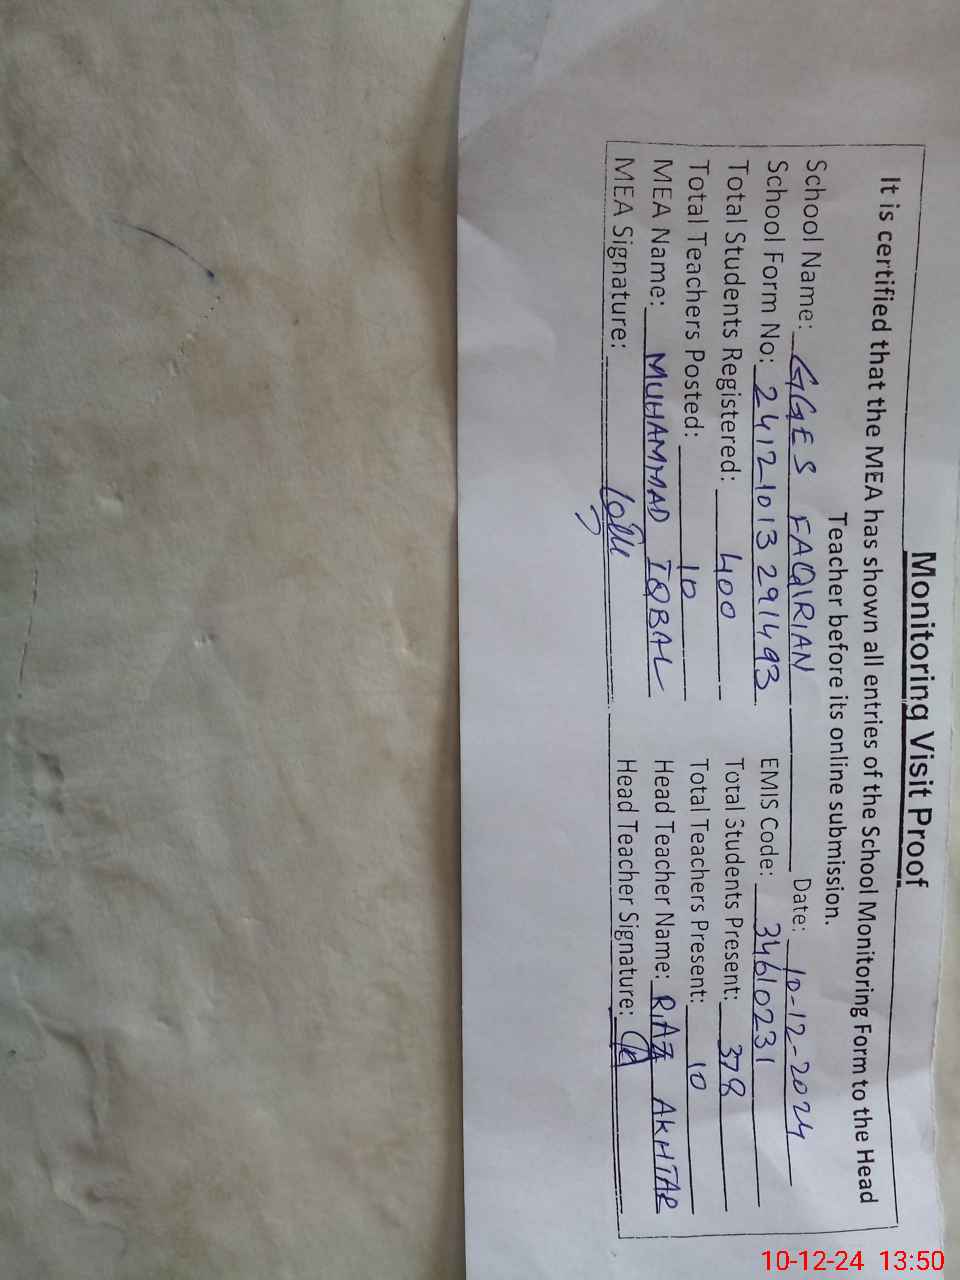 Monitoring Visit Proof
It is certified that the MEA has shown all entries of the School Monitoring Form to the Head
Teacher before its online submission.
School Name: GGES FAQIRIAN Date: 10-12-2024
School Form No: 24121013291493 EMIS Code: 34610231
Total Students Registered: 400 Total Students Present: 378
Total Teachers Posted: 10 Total Teachers Present: 10
MEA Name: MUHAMMAD IQBAL Head Teacher Name: RIAZ AKHTAR
MEA Signature: Head Teacher Signature:
10-12-24 13:50